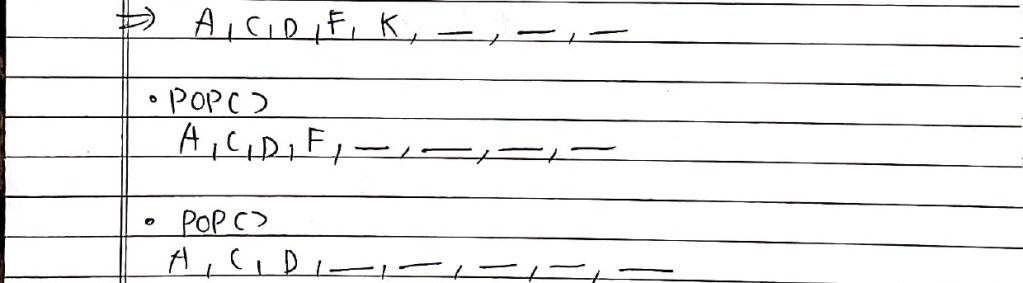 ⇒ A, C, D, F, K, —, —, —
• POP()
A, C, D, F, —, —, —, —
• POP()
A, C, D, —, —, —, —, —